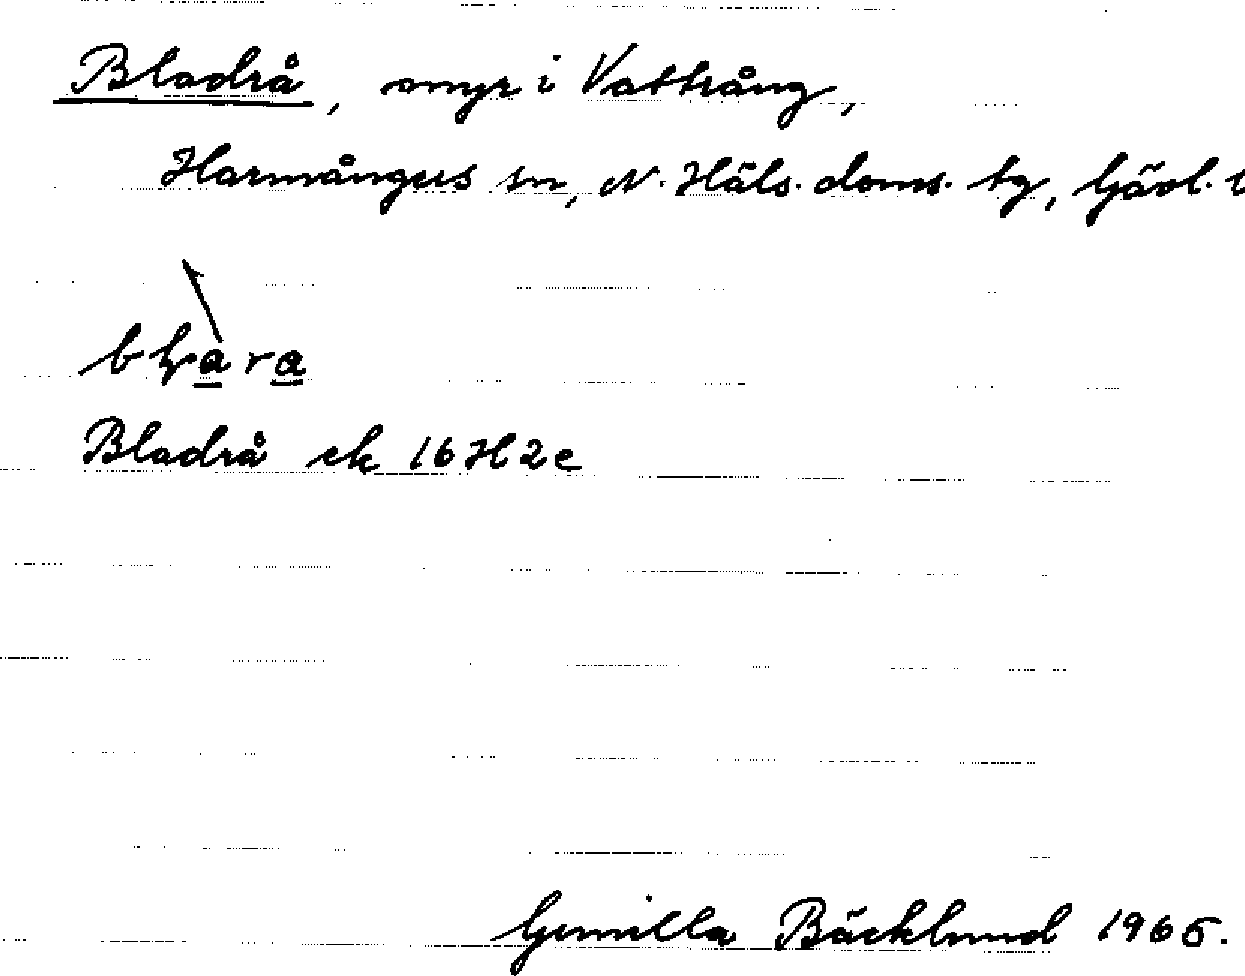 Bladrå, myr i Vattrång,
Harmångers sn, N. Häls. doms. tg, Gävl. l
Bladrå ek 16H2c
Gunilla Bäcklund 1965.